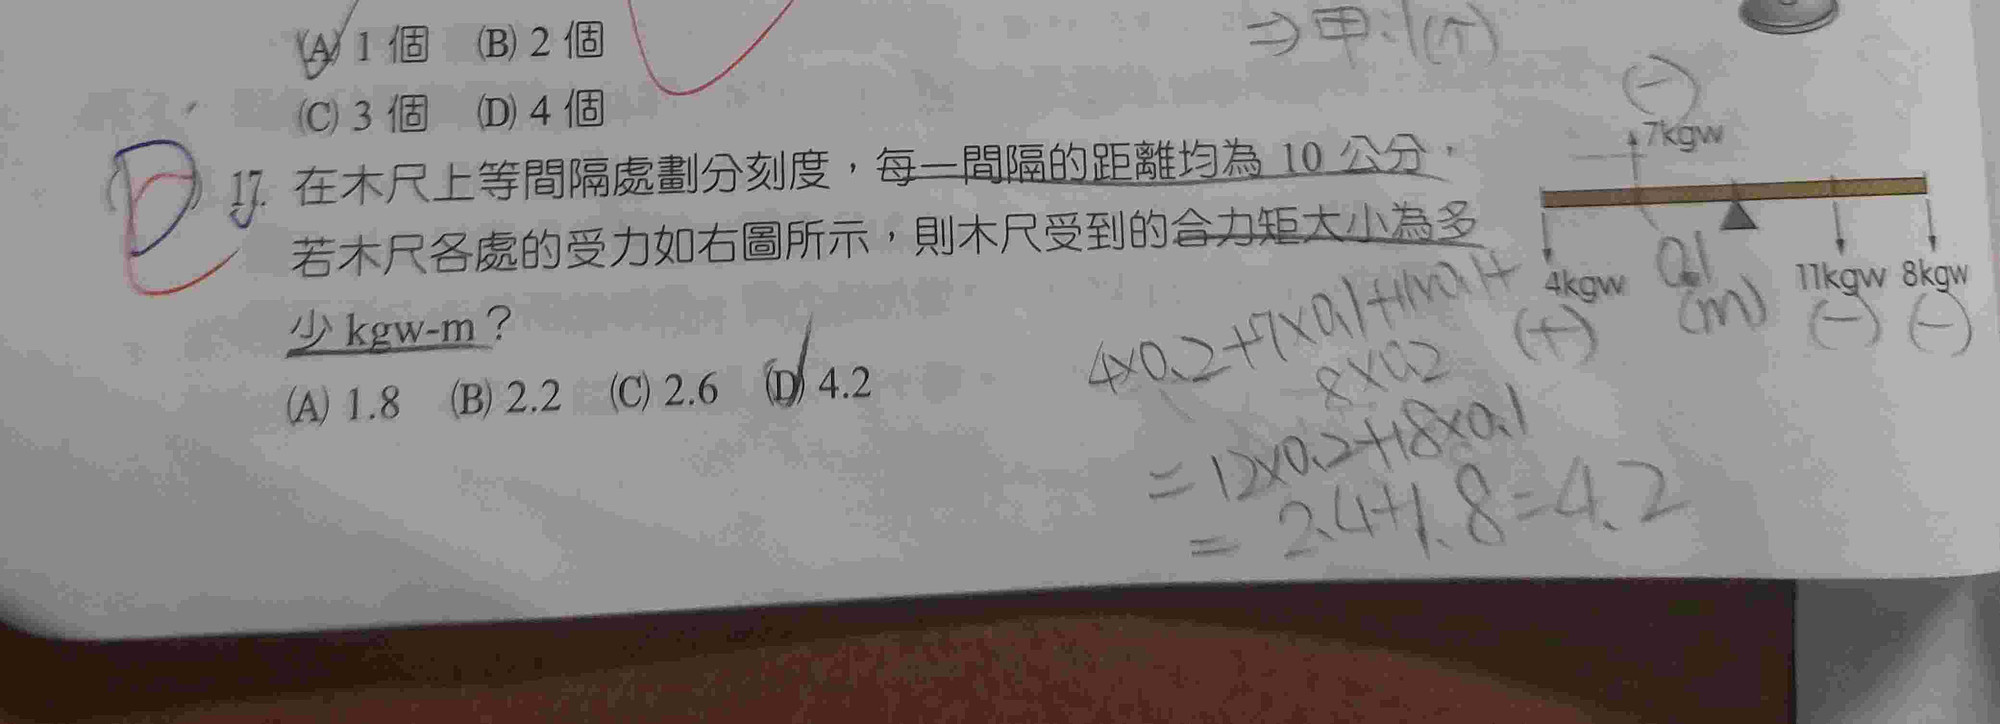 (A) 1 個 (B) 2 個
(C) 3 個 (D) 4 個
⇒甲:1(个)
D 17. 在木尺上等間隔處劃分刻度，每一間隔的距離均為 10 公分，
若木尺各處的受力如右圖所示，則木尺受到的合力矩大小為多
少 kgw-m？
(A) 1.8 (B) 2.2 (C) 2.6 (D) 4.2
(-)
7kgw
4kgw 0.1 11kgw 8kgw
(+) (m) (-) (-)
4×0.2+7×0.1+11×0.1+
8×0.2
=12×0.2+18×0.1
=2.4+1.8=4.2